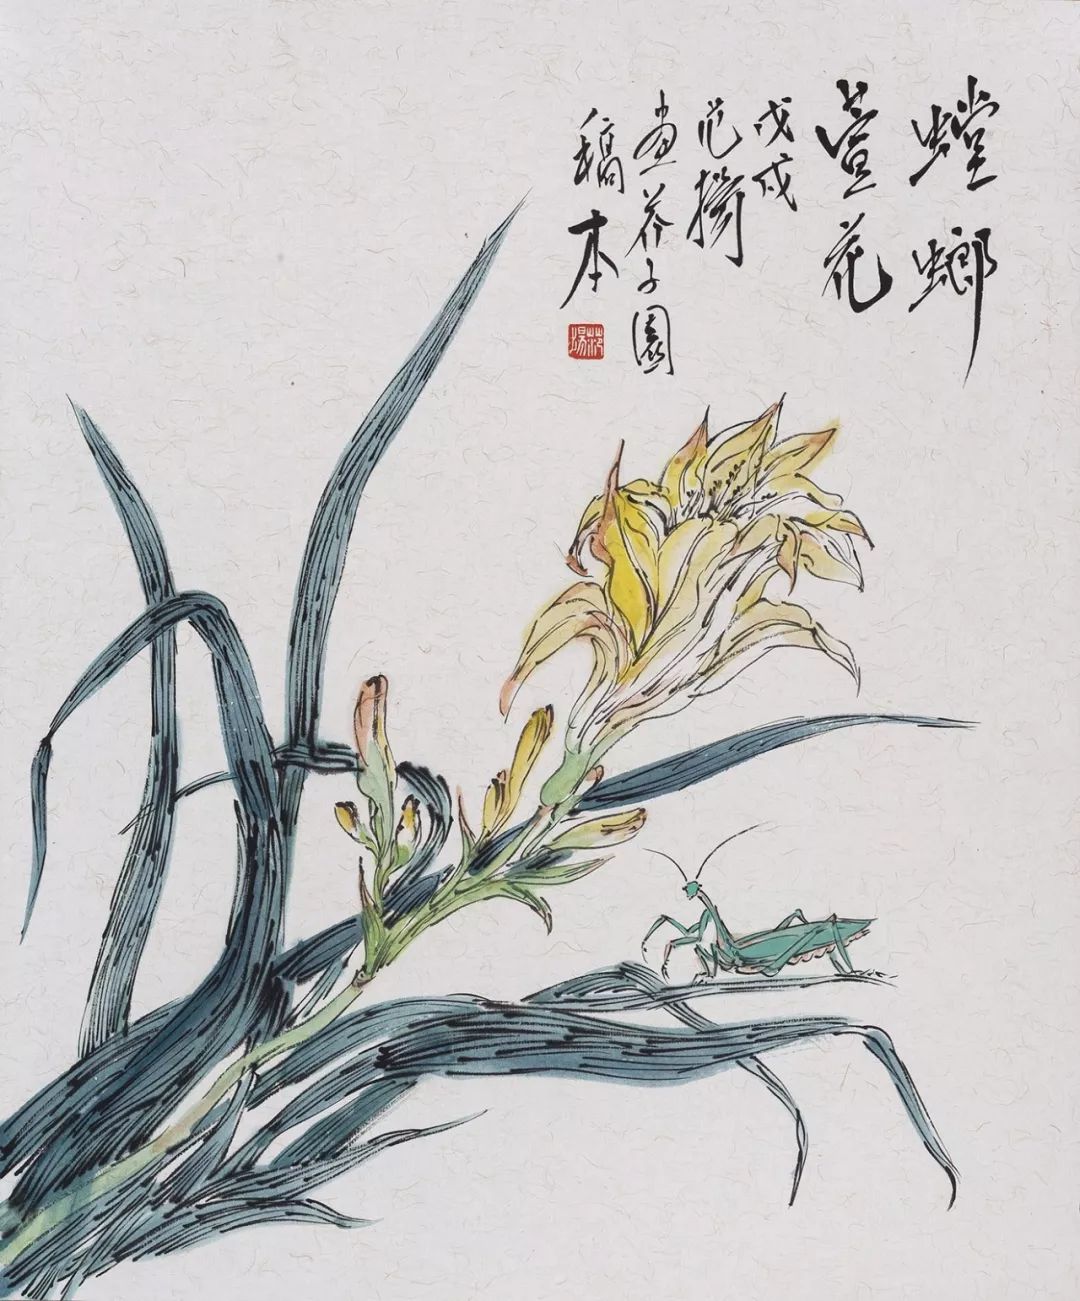 螳螂
萱花
戊戌
范揚
画芥子園
稿本
范揚